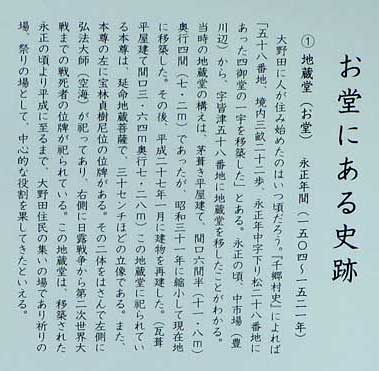 お堂にある史跡
① 地蔵堂（お堂） 永正年間（一五〇四～一五二一年）
大野田に人が住み始めたのはいつ頃だろう。「千郷村史」によれば
「五十八番地 境内三畝二十二歩、永正年中字下り松二十八番地に
あった四御堂の一宇を移築した」とある。永正の頃、中市場（豊
川辺）から、字皆津五十八番地に地蔵堂を移したことがわかる。
当時の地蔵堂の構えは、茅葺き平屋建て、間口六間半（十一・八ｍ）
奥行四間（七・二ｍ）であったが、昭和三十一年に縮小して現在地
に移築した。その後、平成二十七年一月に建物を再建した。（瓦葺
平屋建て間口三・六四ｍ奥行七・二八ｍ）この地蔵堂に祀られてい
る本尊は、延命地蔵菩薩で、三十センチほどの立像である。また、
本尊の左に宝林貞樹尼位の位牌がある。その二体をはさんで左側に
弘法大師（空海）が祀ってあり、右側に日露戦争から第二次世界大
戦までの戦死者の位牌が祀られている。この地蔵堂は、移築された
永正の頃より平成に至るまで、大野田住民の集いの場であり祈りの
場、祭りの場として、中心的な役割を果してきたといえる。